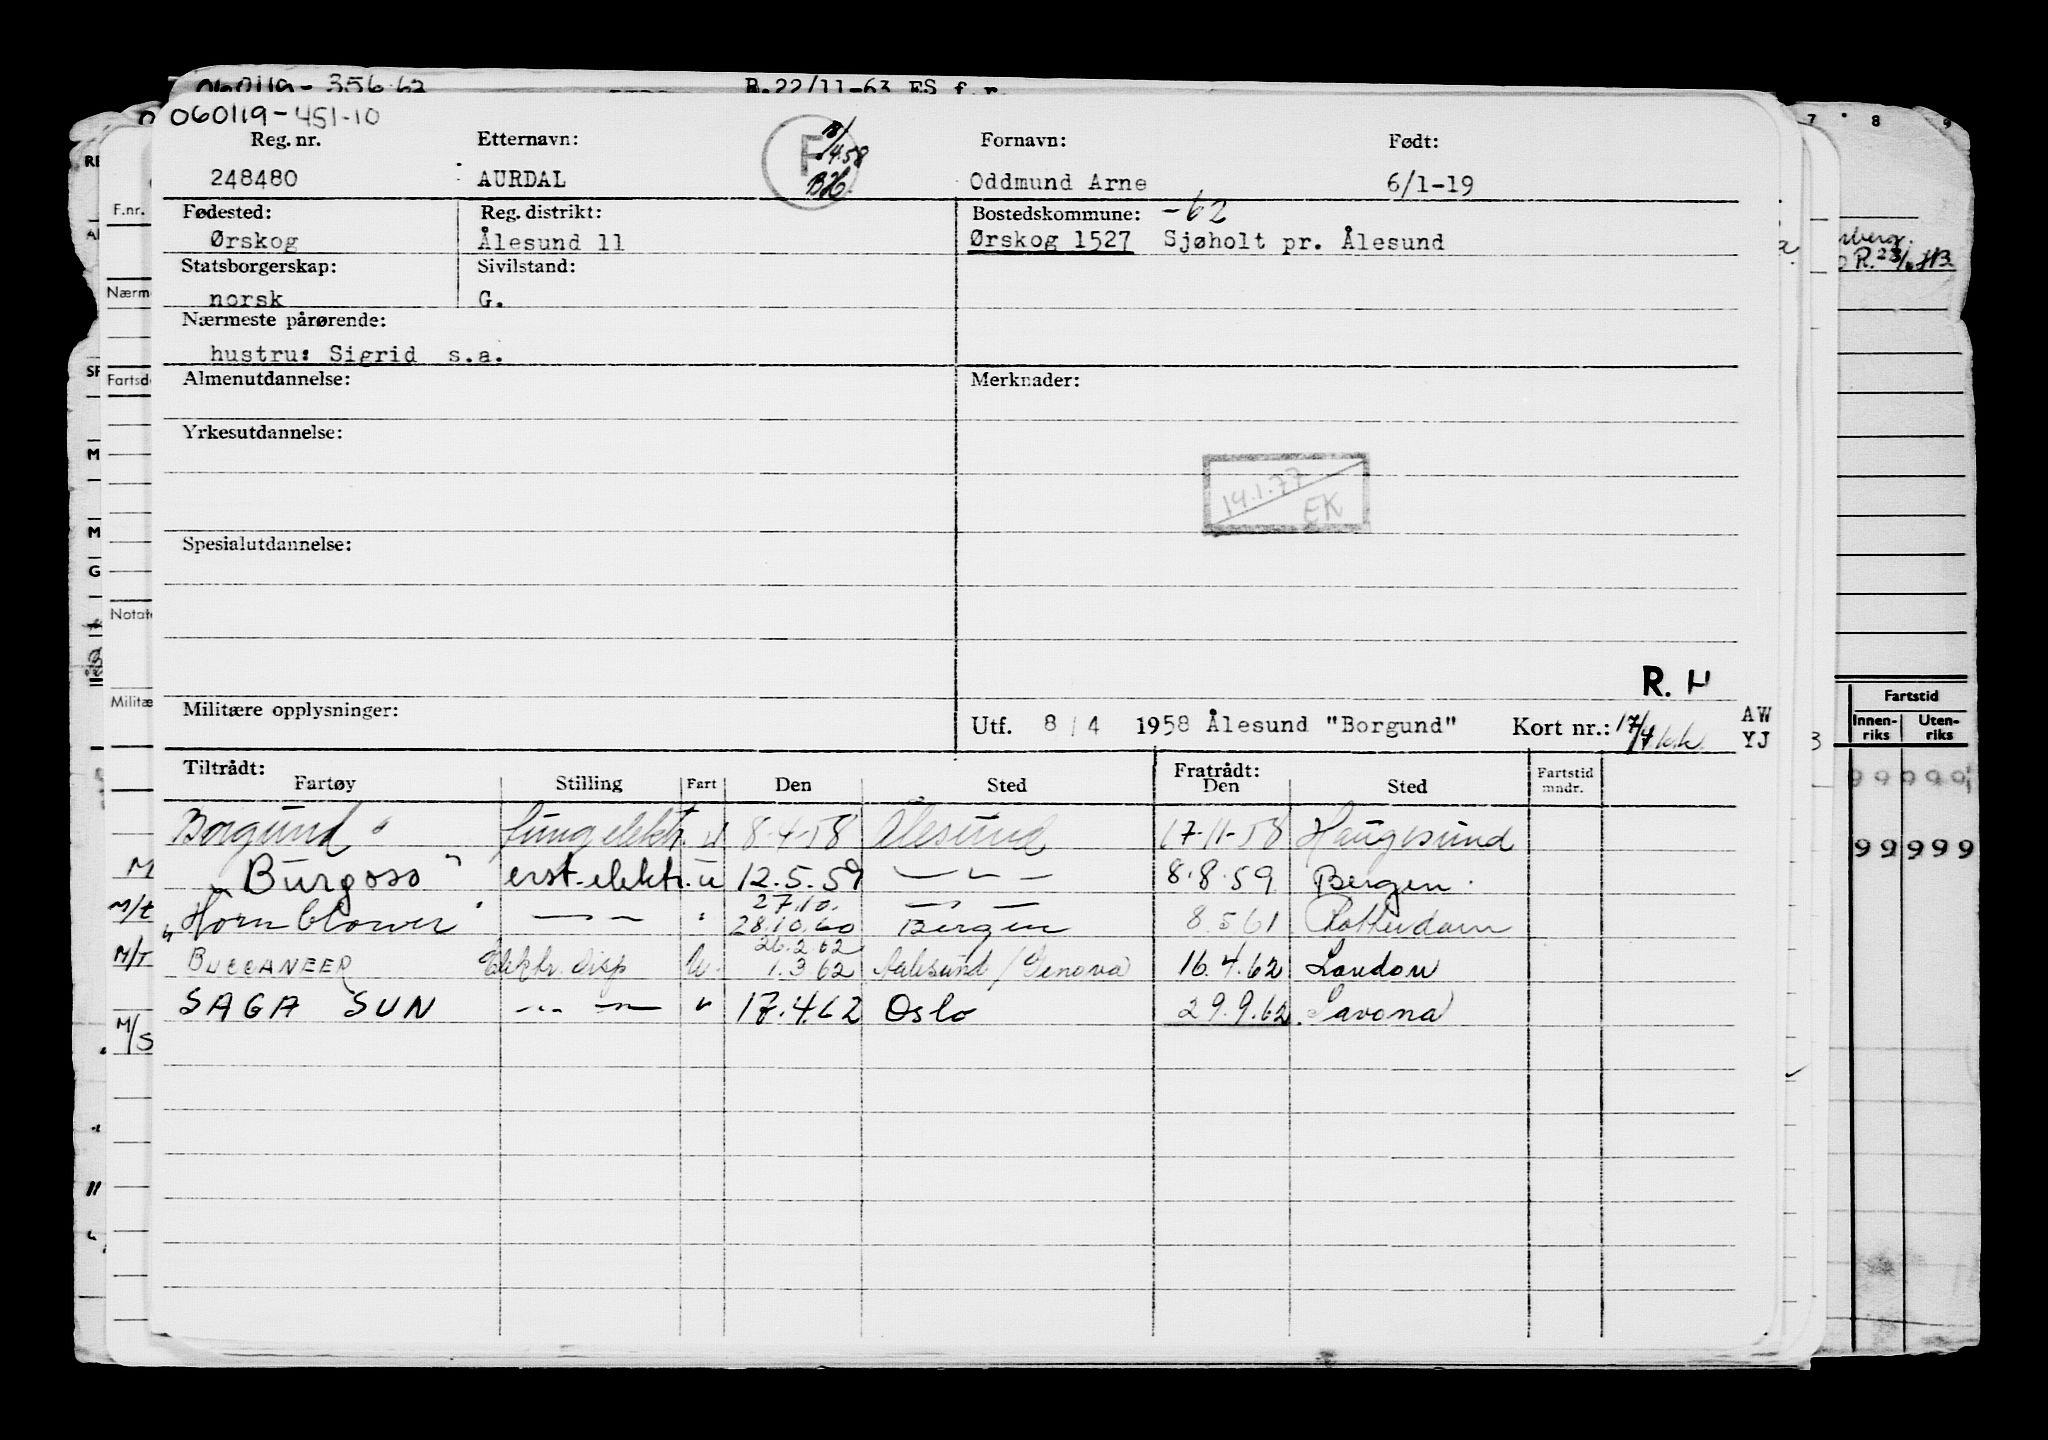 060119-356.62 R.22/11-63 ES f.r.
060119-451-10
Reg. nr. Etternavn: Fornavn: Født:
248480 AURDAL F 4.58 BH. Oddmund Arne 6/1-19
Fødested: Reg. distrikt: Bostedskommune: -62
Ørskog Ålesund 11 Ørskog 1527 Sjøholt pr. Ålesund
Statsborgerskap: Sivilstand:
norsk G.
Nærmeste pårørende:
hustru: Sigrid s.a.
Almenutdannelse: Merknader:
Yrkesutdannelse:
14.1.77
EK
Spesialutdannelse:
R. H
Militære opplysninger: Utf. 8/4 1958 Ålesund "Borgund" Kort nr.: 17/4 k.k. AW
YJ
Tiltrådt: Fratrådt:
Fartøy Stilling Fart Den Sted Den Sted Fartstid mndr.
Borgund " fung elektr. u 8.4.58 Ålesund 17.11.58 Haugesund
"Burgoso" erst. elektr. u 12.5.59 — " — 8.8.59 Bergen.
27.10. — " —
"Hornblower" — " — " 28.10.60 Bergen 8.5.61 Rotterdam
26.2.62
BUCCANEER Elektr. disp U. 1.3.62 Aalesund/Genova 16.4.62 London
SAGA SUN — " — " 17.4.62 Oslo 29.9.62. Savona
F.nr.
Nærm
Fartsd
Notat
Militæ
M
M/t
M/T
M/S
7 8 9
R. 23/6 HB.
Fartstid
Innen-riks Uten-riks
9 9 9 9 9
9 9 9 9 9